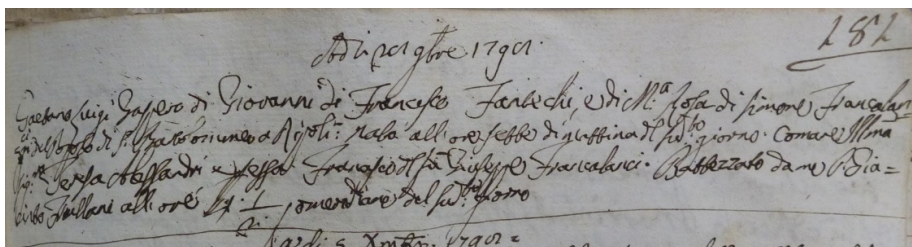 282
Adi 29 9bre 1792
Gaetano Luigi Gaspero di Giovanni di Francesco Fantechi e di M.a Rosa di Simone Francalan=
del Popolo di S. Bartolommeo a Ripoli nato all ore sette di mattina del sud.to giorno. Comare Illma
Sig.ra Teresa Alessandri e Francesco del fu Giuseppe Francalanci. Battezzato da me P. Dia=
cinto Fullani all ore pomeridiane del sud.to giorno
Adi 5 Xmbre 1792